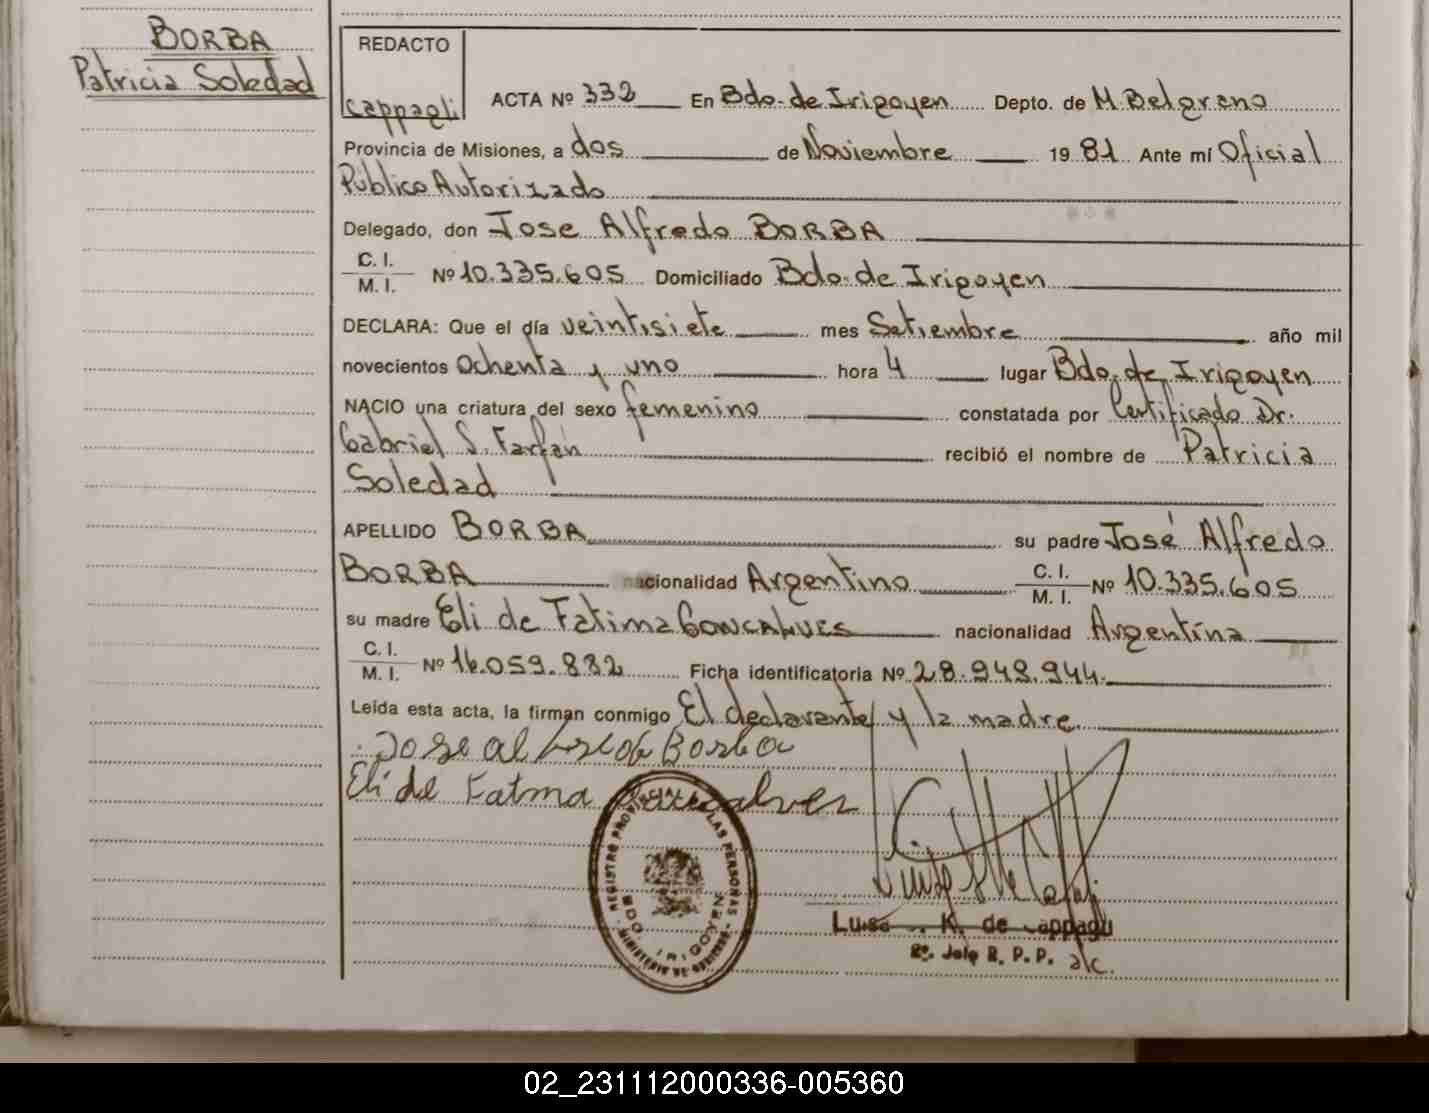 BORBA
Patricia Soledad
REDACTO
Cappagli
ACTA Nº 332 En Bdo. de Irigoyen Depto. de M. Belgrano
Provincia de Misiones, a dos de Noviembre 1981 Ante mí Oficial
Público Autorizado
Delegado, don Jose Alfredo BORBA
C. I.
M. I. Nº 10.335.605 Domiciliado Bdo. de Irigoyen
DECLARA: Que el día veintisiete mes Setiembre año mil
novecientos Ochenta y uno hora 4 lugar Bdo. de Irigoyen
NACIO una criatura del sexo femenino constatada por Certificado Dr.
Gabriel S. Farfán recibió el nombre de Patricia
Soledad
APELLIDO BORBA su padre José Alfredo
BORBA nacionalidad Argentino C. I.
M. I. Nº 10.335.605
su madre Eli de Fatima GONCALVES nacionalidad Argentina
C. I.
M. I. Nº 16.059.832 Ficha identificatoria Nº 28.949.944.
Leída esta acta, la firman conmigo El declarante y la madre.
Jose Alfredo Borba
Eli de Fatma Goncalves
REGISTRO PROVINCIAL DE LAS PERSONAS
BDO. IRIGOYEN
MINISTERIO DE GOBIERNO
Luisa K. de Cappagli
2º. Jefe R. P. P. a/c.
02_231112000336-005360